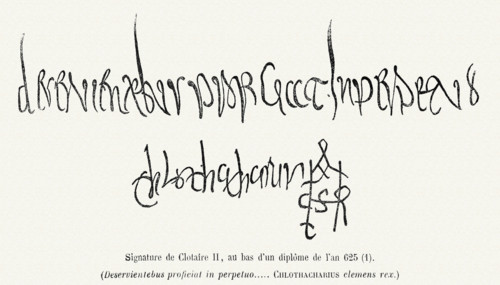 deservientebus proficiat In perpetuo
chlothacharius
Signature de Clotaire II, au bas d'un diplôme de l'an 625 (1).
(Deservientebus proficiat in perpetuo..... CHLOTHACHARIUS clemens rex.)